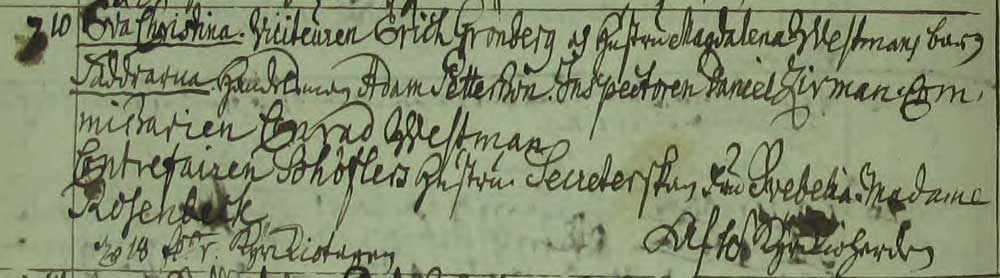 10 Eva Christina. Viciteuren Erich Grönberg och Hustru Magdalena Westmans barn
Faddrarna. Handelsman Adam Petterson. Inspectoren Daniel Zirman. Com-
missarien Conrad Westman
Contrefairen Schöflers Hustru. Secreterskan Fru Prebelia. Madame
Rosenbeck
18 Kyrkiotagen Kyrkioherden